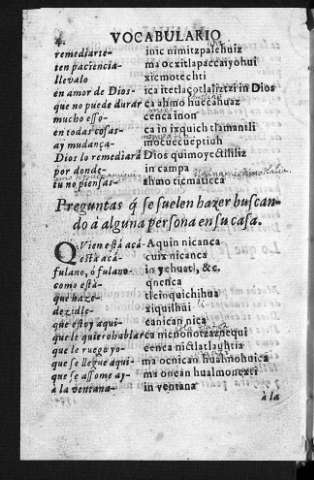 4. VOCABULARIO
remediarte- inic nimitzpalehuiz
ten paciencia- ma ocxitlapaccaiyohui
llevalo xicmotechti
en amor de Dios- ica itetlaçotlaliztzi in Dios
que no puede durar ca ahmo huecahuaz
mucho esso- cenca inon
en todas cosas- ca in ixquich tlamantli
ay mudança- mocuecueptiuh
Dios lo remediarà Dios quimoyectililiz
por donde- in campa
tu no piensas- ahmo ticmaticca
Preguntas q̃ se suelen hazer buscan-
do à alguna persona en su casa.
QVien està acà- Aquin nicanca
està acà- cuix nicanca
fulano, ò fulano- in yehuatl, &c.
como està- quenca
que haze- tleinquichihua
dezidle- xiquilhui
que estoy aqui- canican nica
que le quiero hablar ca nicnonotzaznequi
que le ruego yo- cenca nictlatlauhtia
que se llegue aqui- ma ocnican hualmohuica
que se assome ay- ma oncan hualmonexti
à la ventana- in ventana
à la